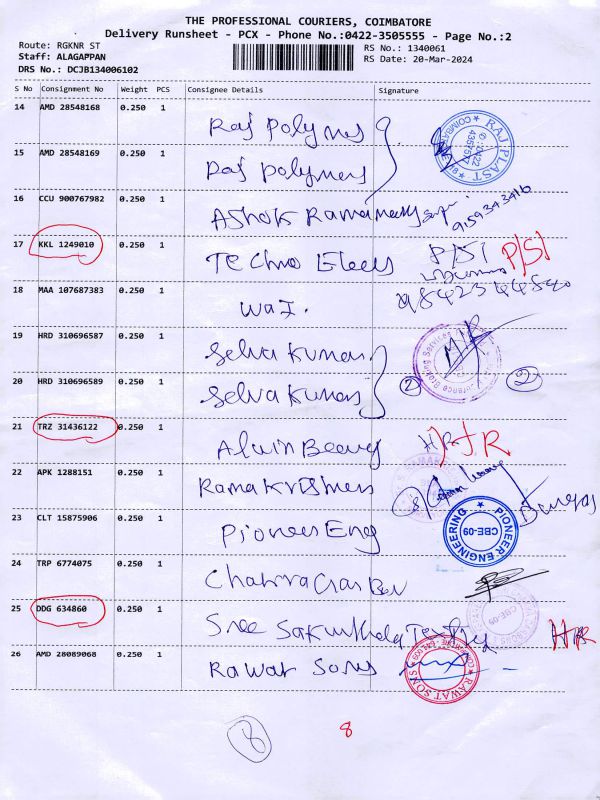 THE PROFESSIONAL COURIERS, COIMBATORE
Delivery Runsheet - PCX - Phone No.:0422-3505555 - Page No.:2
Route: RGKNR ST RS No.: 1340061
Staff: ALAGAPPAN RS Date: 20-Mar-2024
DRS No.: DCJB134006102
S No Consignment No Weight PCS Consignee Details Signature
14 AMD 28548168 0.250 1
Raj Polymers
15 AMD 28548169 0.250 1
Raj Polymers
RAJ PLAST
16 CCU 900767982 0.250 1
Ashok Ramamoorthy
17 KKL 1249010 0.250 1
Techno Elecs P/S1 P/S1
18 MAA 107687383 0.250 1
Wai.
19 HRD 310696587 0.250 1
Selva Kumar
20 HRD 310696589 0.250 1
Selva Kumar 2 2
21 TRZ 31436122 0.250 1
Alwin Beavy
22 APK 1288151 0.250 1
Rama Krishnen
23 CLT 15875906 0.250 1
Pioneer Eng
PIONEER ENGINEERING CBE-09
24 TRP 6774075 0.250 1
25 DDG 634860 0.250 1
Sree Sakunthala
CBE-09
26 AMD 28089068 0.250 1
Rawat Sons
RAWAT SONS
8
8